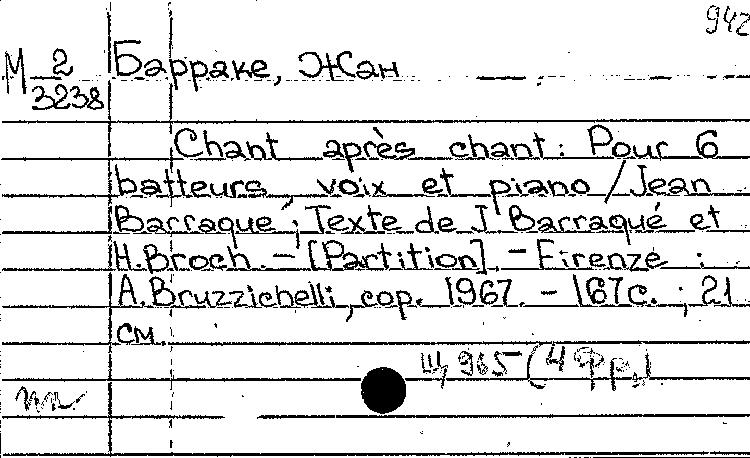 942
М 2/3238 Барраке, Жан
Chant après chant : Pour 6
batteurs, voix et piano / Jean
Barraque ; Texte de J. Barraqué et
H. Broch. – [Partition]. – Firenze :
A. Bruzzichelli, cop. 1967. – 167 с. ; 21
см.
Щ 965 (4 Фр.)